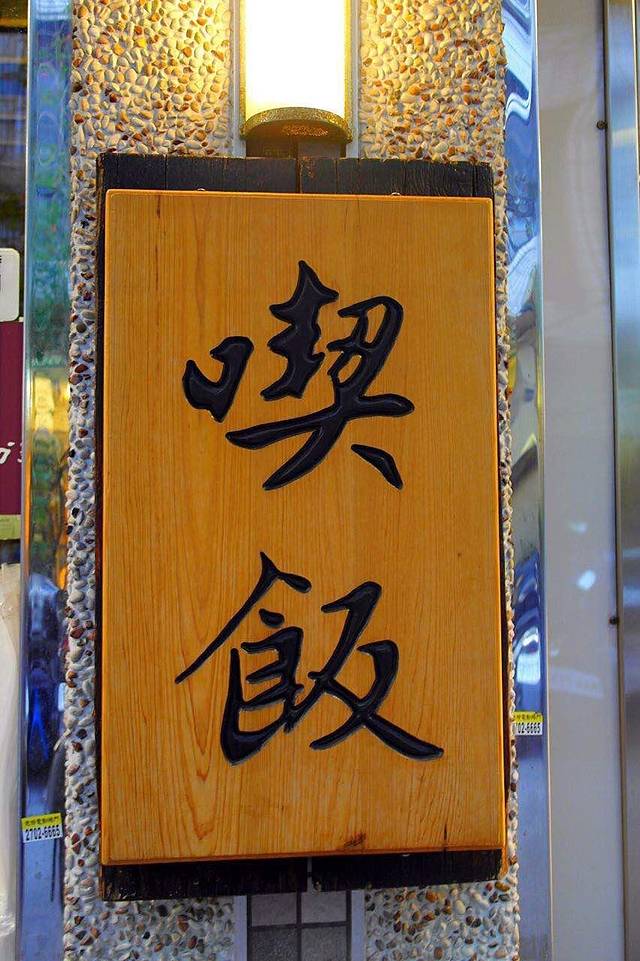 喫
飯
2702-6665
02-6665